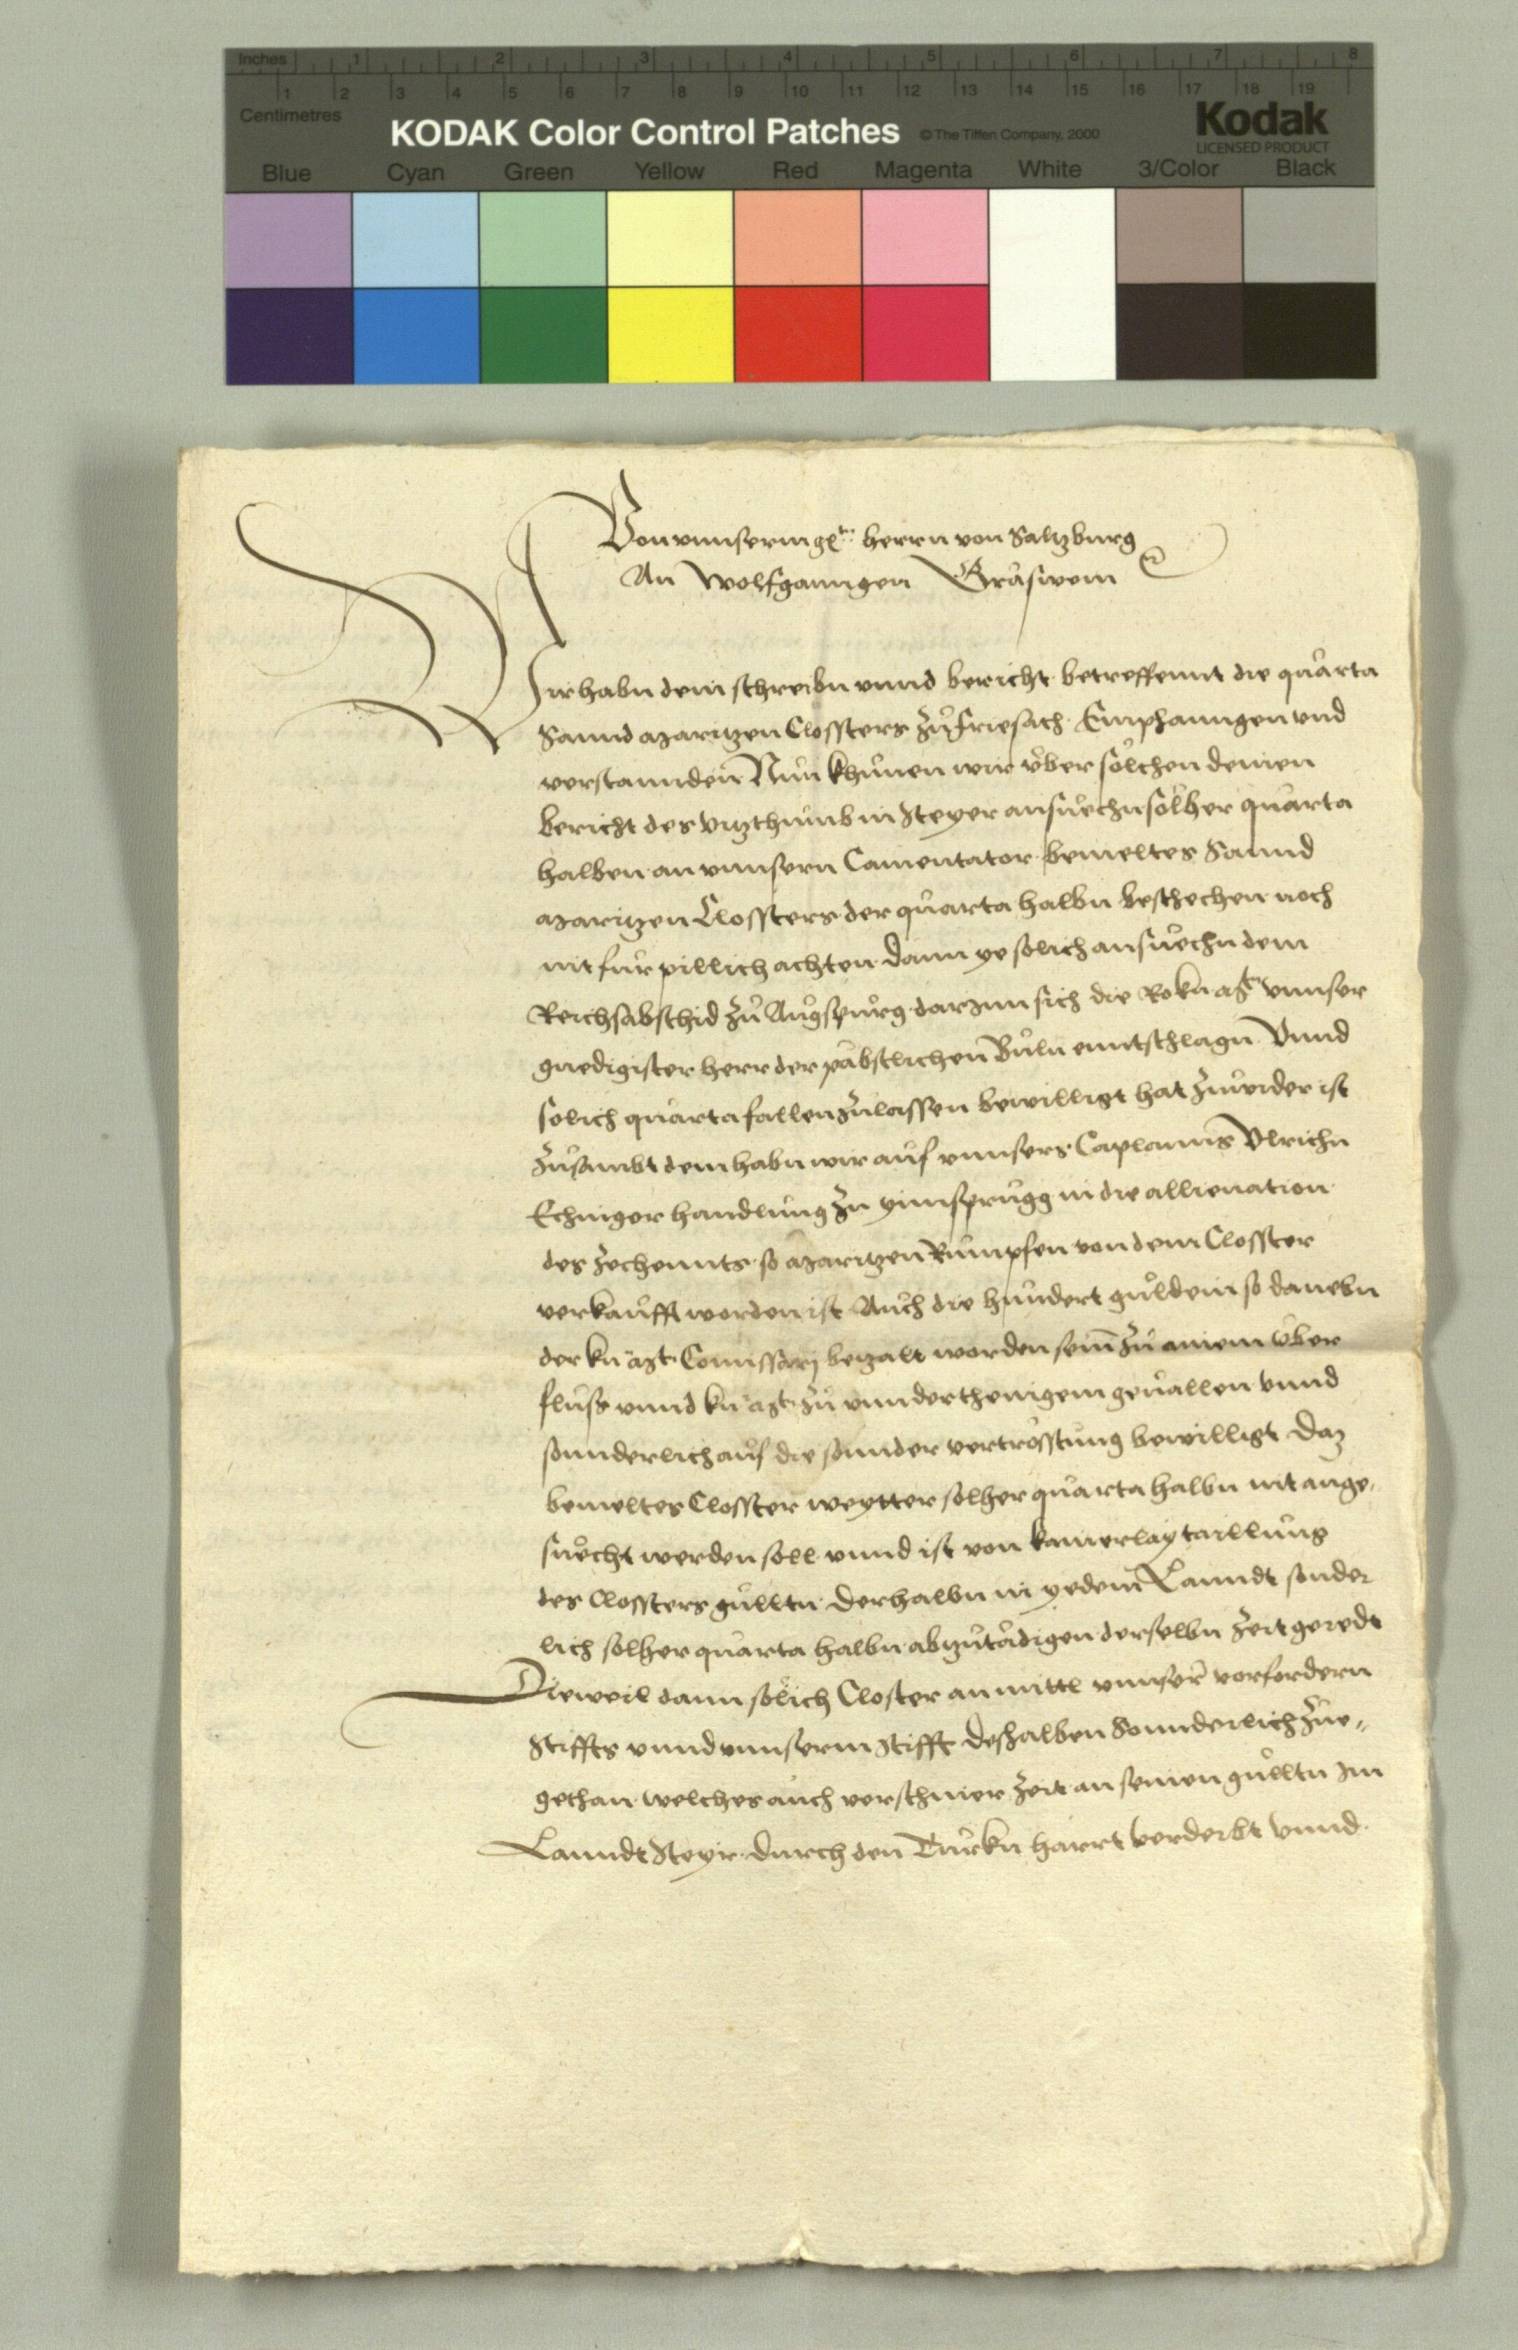 Inches 1 2 3 4 5 6 7 8
1 2 3 4 5 6 7 8 9 10 11 12 13 14 15 16 17 18 19
Centimetres
KODAK Color Control Patches © The Tiffen Company, 2000 Kodak
LICENSED PRODUCT
Blue Cyan Green Yellow Red Magenta White 3/Color Black
Von vnnserm gstn herrn von Saltzburg
An Wolfganngen Gräswein
Wir habn dein schreibn vnnd bericht betreffennt die quarta
Sannd Maritzen Clossters zu Friesach Emphanngen vnd
verstannden Nun khunen wir vber solchen deinen
bericht des vitzthumb in Steyer ansuechn solher quarta
halben an vnnsern Comentator bemeltes Sannd
Maritzen Clossters der quarta halbn beschechen noch
nit fur pillich achten dann ye solich ansuechn dem
Reichsabschid zu Augspurg darinn sich die Ro kn Mt vnnser
gnedigister herr der päbstlichen Buln enntschlagn Vnnd
solich quarta fallen zulassen bewilligt hat zuwider ist
zusambt dem habn wir auf vnnsers Caplanns Vlrichn
Echinger handlung zu ynnsprugg in die allienation
des zechennts so Maritzen Rumpfen von dem Closster
verkaufft worden ist Auch die hundert guldein so danebn
der kn Mt Comissarj bezalt worden sein zu ainem vber
fluss vnnd kn Mt zu vnnderthenigem geuallen vnnd
sonnderlich auf die sonnder vertrösstung bewilligt Daz
bemeltes Closster weytter solher quarta halbn nit ange-
suecht werden soll vnnd ist von kainerlay taillung
des Clossters gulltn Derhalbn in yedem Lanndt sonder
lich solher quarta halbn abzutädigen derselbn zeit geredt
Dieweil dann solich Closter an mittl vnnser vorfordern
Stiffts vnnd vnnserm Stifft deshalben Sonnderlich zue-
gethan welches auch verschiner zeit an seinen gulltn Im
Lanndt Steyr durch den Turkn harrt verderbt vnnd